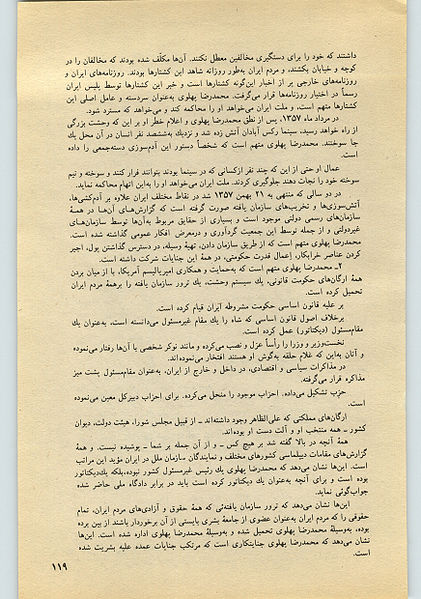 داشتند که خود را برای دستگیری مخالفین معطل نکنند. آن‌ها مکلّف شده بودند که مخالفان را در
کوچه و خیابان بکشند، و مردم ایران به‌طور روزانه شاهد این کشتارها بودند. روزنامه‌های ایران و
روزنامه‌های خارجی پر از اخبار این‌گونه کشتارها است و خبر این کشتارها توسط پلیس ایران
رسماً در اختیار روزنامه‌ها قرار می‌گرفت. محمدرضا پهلوی به‌عنوان سردسته و عامل اصلی این
کشتارها متهم است، و ملت ایران می‌خواهد او را محاکمه کند و می‌خواهد که مسترد شود.
در مرداد ماه ۱۳۵۷، پس از نطق محمدرضا پهلوی و اعلام خطر او بر این که وحشت بزرگی
از راه خواهد رسید، سینما رکس آبادان آتش زده شد و نزدیك به‌ششصد نفر انسان در آن محل یك
جا سوختند. محمدرضا پهلوی متهم است که شخصاً دستور این آدم‌سوزی دسته‌جمعی را داده
است.
عمال او حتی از این که چند نفر ازکسانی که در سینما بودند بتوانند فرار کنند و سوخته و نیم
سوخته خود را نجات دهند جلوگیری کردند. ملت ایران می‌خواهد او را به‌این اتهام محاکمه نماید.
در دو سالی که منتهی به ۲۱ بهمن ۱۳۵۷ شد در نقاط مختلف ایران علاوه بر آدم‌کشی‌ها،
آتش‌سوزی‌ها و تخریب‌های سازمان یافته صورت گرفته است که گزارش‌های آن‌ها در همهٔ
سازمان‌های رسمی دولتی موجود است و بسیاری از حقایق مربوط به‌آن‌ها توسط سازمان‌های
غیردولتی و از جمله توسط این جمعیت گردآوری و درمعرض افکار عمومی گذاشته شده است.
محمدرضا پهلوی متهم است که از طریق سازمان دادن، تهیهٔ وسیله، در دسترس گذاشتن پول، اجیر
کردن عناصر خرابکار، اِعمال قدرت حکومتی، در همهٔ این جنایات شرکت داشته است.
۲ـ محمدرضا پهلوی متهم است که به‌حمایت و همکاری امپریالیسم آمریکا، با از میان بردن
همهٔ ارگان‌های حکومت قانونی، یك سیستم وحشت، یك ترور سازمان یافته را برهمهٔ مردم ایران
تحمیل کرده است.
بر علیه قانون اساسی حکومت مشروطه ایران قیام کرده است.
برخلاف اصول قانون اساسی که شاه را یك مقام غیرمسئول می‌دانسته است، به‌عنوان یك
مقام‌مسئول (دیکتاتور) عمل کرده است.
نخست‌وزیر و وزرا را رأساً عزل و نصب می‌کرده و مانند نوکر شخصی با آن‌ها رفتار می‌نموده
و آنان به‌این که غلام حلقه به‌گوش او هستند افتخار می‌نموده‌اند.
در مذاکرات سیاسی و اقتصادی، در داخل و خارج از ایران، به‌عنوان مقام‌مسئول پشت میز
مذاکره قرار می‌گرفته.
حزب تشکیل می‌داده. احزاب موجود را منحل می‌کرده. برای احزاب دبیرکل معین می‌نموده
است.
ارگان‌های مملکتی که علی‌الظاهر وجود داشته‌اند ـ از قبیل مجلس شورا، هیئت دولت، دیوان
کشور ـ همه منتخب او و آلت دست او بوده‌اند.
همهٔ آنچه در بالا گفته شد بر هیچ کس ـ و از آن جمله بر شما ـ پوشیده نیست. و همهٔ
گزارش‌های مقامات دیپلماسی کشورهای مختلف و نمایندگان سازمان ملل در ایران مؤید این مراتب
است. این‌ها نشان می‌دهد که محمدرضا پهلوی یك رئیس غیرمسئول کشور نبوده،بلکه یك‌دیکتاتور
بوده است و برای آنچه به‌عنوان یك دیکتاتور کرده است باید در برابر دادگاه ملی حاضر شده
جواب‌گوئی نماید.
این‌ها نشان می‌دهد که ترور سازمان یافته‌ئی که همهٔ حقوق و آزادی‌های مردم ایران، تمام
حقوقی را که مردم ایران به‌عنوان عضوی از جامعهٔ بشری بایستی از آن برخوردار باشند از بین برده
بوده، به‌وسیلهٔ محمدرضا پهلوی تحمیل شده و به‌وسیلهٔ محمدرضا پهلوی اداره شده است. این‌ها
نشان می‌دهد که محمدرضا پهلوی جنایتکاری است که مرتکب جنایات عمده علیه بشریت شده
است.
۱۱۹